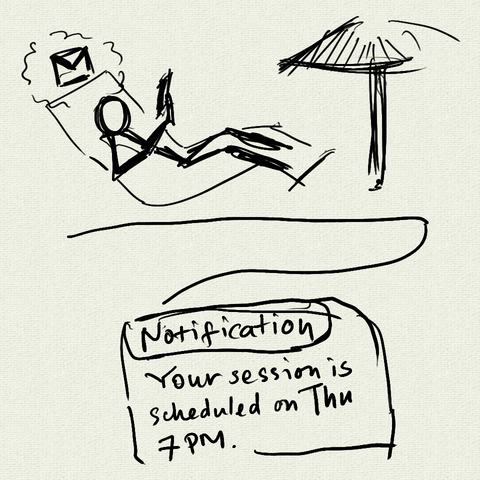 Notification
Your session is
scheduled on Thu
7 PM.